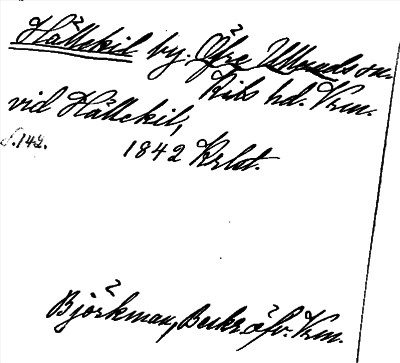 Hällekil by. Öfre Ullereds sn.
Kils hd. Vrm.
vid Hällekil,
s. 142. 1842 Krlst.
Björkman, Beskr. öfv. Vrm.